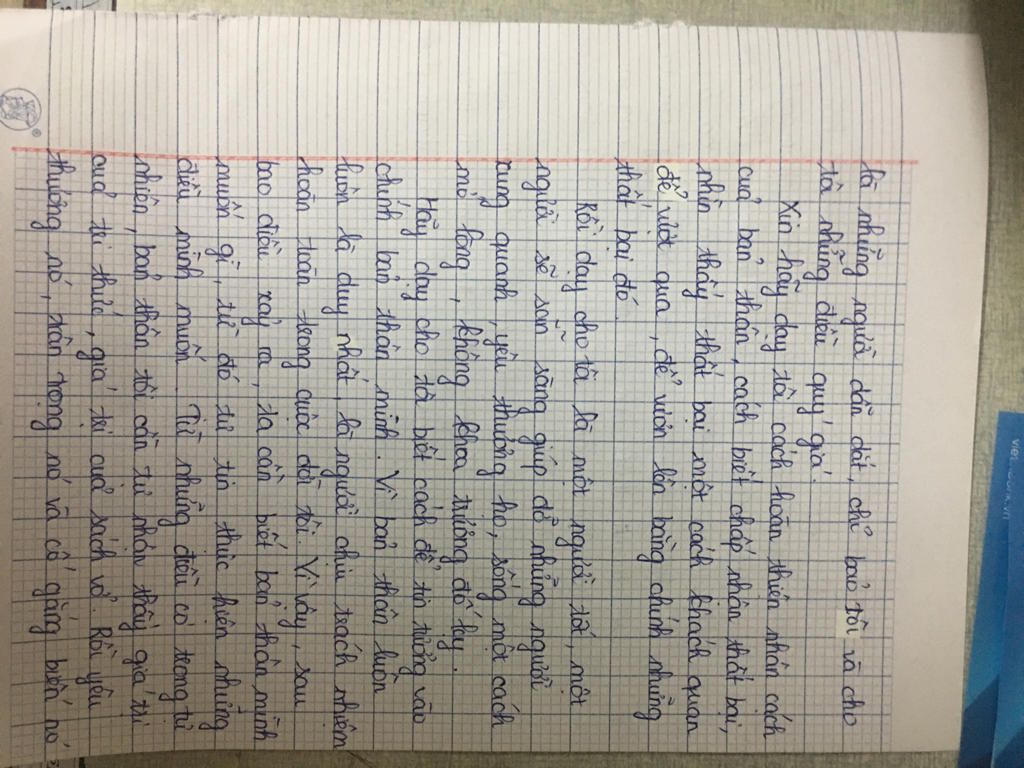 là những người dẫn dắt, chỉ bảo tôi và cho
tôi những điều quý giá.
Xin hãy dạy tôi cách hoàn thiện nhân cách
của bản thân, cách biết chấp nhận thất bại,
nhìn thấy thất bại một cách khách quan
để vượt qua, để vươn lên bằng chính những
thất bại đó.
Rồi dạy cho tôi là một người tốt, một
người sẽ sẵn sàng giúp đỡ những người
xung quanh, yêu thương họ, sống một cách
mở lòng, không khoa trương đố kỵ.
Hãy dạy cho tôi biết cách để tin tưởng vào
chính bản thân mình. Vì bản thân luôn
luôn là duy nhất, là người chịu trách nhiệm
hoàn toàn trong cuộc đời tôi. Vì vậy, sau
bao điều xảy ra, ta cần biết bản thân mình
muốn gì, từ đó tự tin thực hiện những
điều mình muốn. Từ những điều có trong tự
nhiên, bản thân tôi cần tự nhận thấy giá trị
của tri thức, giá trị của sách vở. Rồi yêu
thương nó, trân trọng nó và cố gắng biến nó
vietinbank.vn